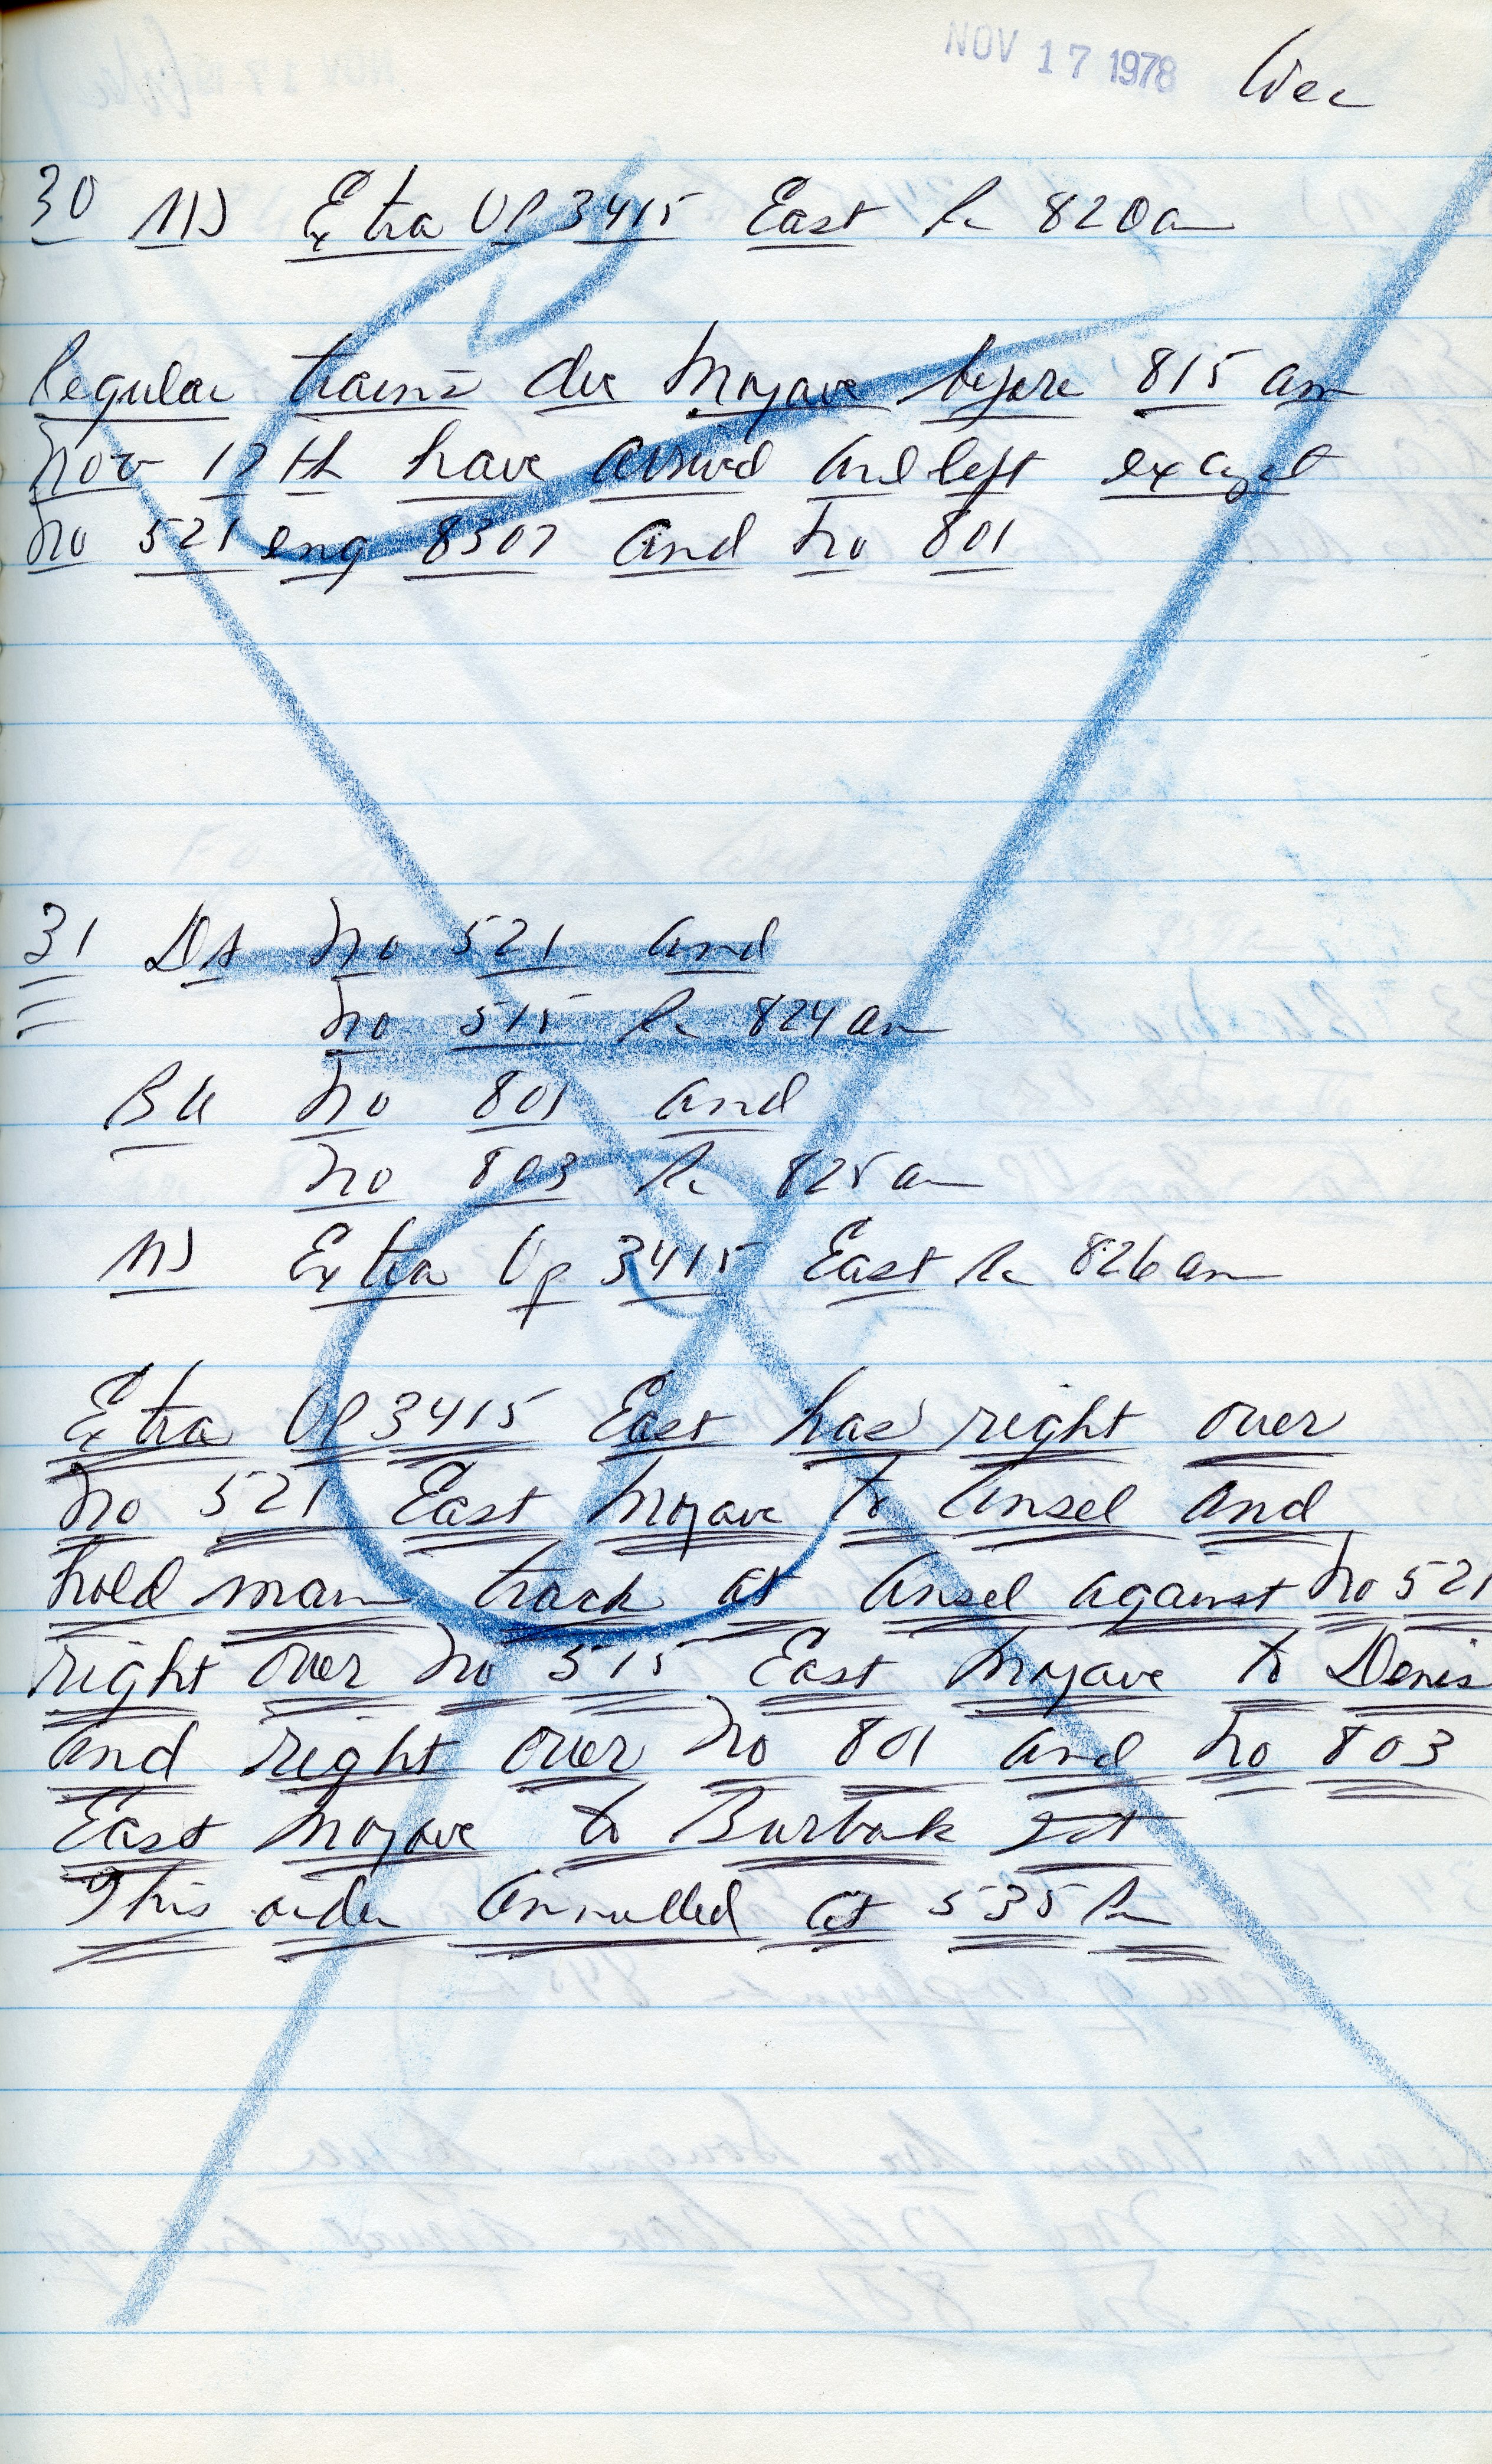 NOV 17 1978
30 MJ Extra UP 3415 East Rn 820 am
Regular trains due Mojave before 815 am
Nov 17th have arrived and left except
No 521 eng 8307 and No 801
31 DS No 521 and
No 515 Rn 824 am
BU No 801 and
No 803 Rn 825 am
MJ Extra Up 3415 East Rn 826 am
Extra UP 3415 East has right over
No 521 East Mojave to Ansel and
hold main track at Ansel against No 521
right over No 515 East Mojave to Denis
and right over No 801 and No 803
East Mojave to Burbank Jct
This order annulled at 535 Pm